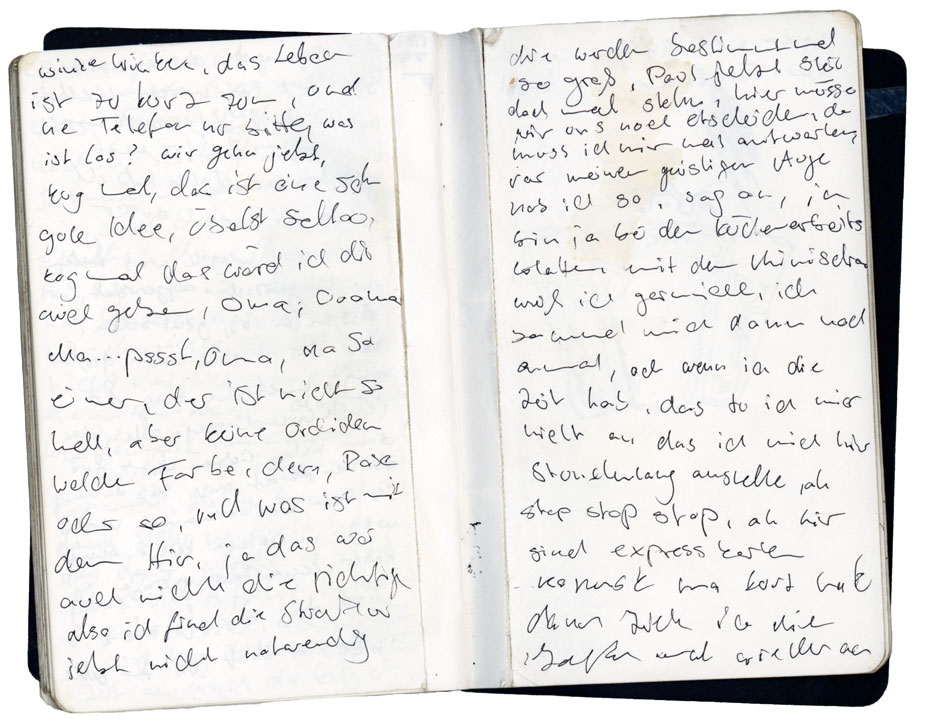 winke winken, das Leben
ist zu kurz zum, und
ne Telefon nr bitte, was
ist los? wir gehn jetzt,
kug mal, das ist eine sch
gute Idee, selbst
kug mal das würd ich dir
auel geben, Oma, Oooma
Ma...pssst, Oma, na so
einer, der ist nicht so
hell, aber keine Ordideen
welche Farbe, denn, Rose
oder so, und was ist mit
dem Hir, ja das wär
auel nicht die richtige
also ich find die Struktur
jetzt nicht notwendig
die werden bestimmt mal
so groß, Paul jetzt
doch mal stehn, hier müsse
wir uns noch etscheiden, da
muss ich mir mal antworten,
vor meinen geistigen Auge
hab ich so, sag an, ich
bin ja bei den küchenarbeits
platten, mit dem
ich, ich
sammel mich dann noch
anmal, och wenn ich die
Zeit hab, das tu ich mir
nicht an das ich mich hir
Stundenlang anstelle, ah
stop stop stop, ah hir
sind express karten
kommst ma kurz mit
dann zieh ich die
und wieder an